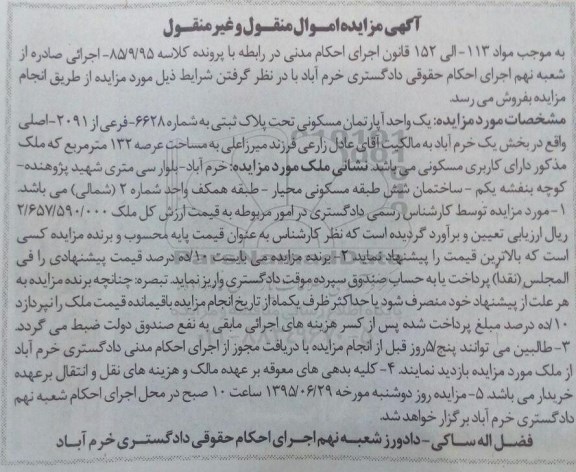 آگهی مزایده اموال منقول و غیر منقول
به موجب مواد ۱۱۳- الی ۱۵۲ قانون اجرای احکام مدنی در رابطه با پرونده کلاسه ۸۵/۹/۹۵- اجرائی صادره از
شعبه نهم اجرای احکام حقوقی دادگستری خرم آباد با در نظر گرفتن شرایط ذیل مورد مزایده از طریق انجام
مزایده بفروش می رسد.
مشخصات مورد مزایده: یک واحد آپارتمان مسکونی تحت پلاک ثبتی به شماره ۶۶۲۸-فرعی از ۲۰۹۱-اصلی
واقع در بخش یک خرم آباد به مالکیت آقای عادل زارعی فرزند میرزاعلی به مساحت عرصه ۱۳۲ مترمربع که ملک
مذکور دارای کاربری مسکونی می باشد. نشانی ملک مورد مزایده: خرم آباد-بلوار سی متری شهید پژوهنده-
کوچه بنفشه یکم - ساختمان شش طبقه مسکونی محیار - طبقه همکف واحد شماره ۲ (شمالی) می باشد.
۱-مورد مزایده توسط کارشناس رسمی دادگستری در امور مربوطه به قیمت ارزش کل ملک ۲/۶۵۷/۵۹۰/۰۰۰
ریال ارزیابی تعیین و برآورد گردیده است که نظر کارشناس به عنوان قیمت پایه محسوب و برنده مزایده کسی
است که بالاترین قیمت را پیشنهاد نماید ۲- برنده مزایده می بایست ۱۰/ده درصد قیمت پیشنهادی را فی
المجلس (نقدا) پرداخت یا به حساب صندوق سپرده موقت دادگستری واریز نماید. تبصره: چنانچه برنده مزایده به
هر علت از پیشنهاد خود منصرف شود یا حداکثر ظرف یکماه از تاریخ انجام مزایده باقیمانده قیمت ملک را نپردازد
۱۰/ده درصد مبلغ پرداخت شده پس از کسر هزینه های اجرائی مابقی به نفع صندوق دولت ضبط می گردد.
۳- طالبین می توانند پنج/۵روز قبل از انجام مزایده با دریافت مجوز از اجرای احکام مدنی دادگستری خرم آباد
از ملک مورد مزایده بازدید نمایند. ۴- کلیه بدهی های معوقه بر عهده مالک و هزینه های نقل و انتقال بر عهده
خریدار می باشد. ۵- مزایده روز دوشنبه مورخه ۱۳۹۵/۰۶/۲۹ ساعت ۱۰ صبح در محل اجرای احکام شعبه نهم
دادگستری خرم آباد برگزار خواهد شد.
فضل اله ساکی - دادورز شعبه نهم اجرای احکام حقوقی دادگستری خرم آباد